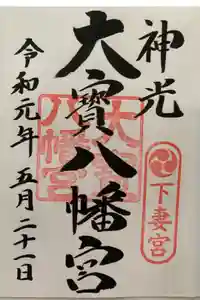 神光
大寳八幡宮
大宝八幡宮
下妻宮
令和元年 五月二十一日